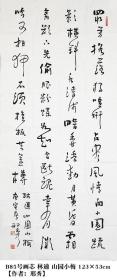 眾芳搖落獨暄妍占盡風情向小園疏
影橫斜水清淺暗香浮動月黃昏霜
禽欲下先偷眼粉蝶如知合斷魂幸有微
吟可相狎不須檀板共金尊
林逋山園小梅
B81号画芯 林逋 山园小梅 123×53cm
【作者】邢秀】